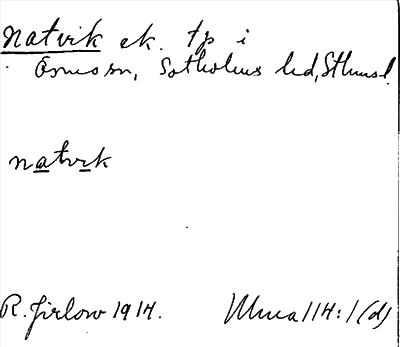 Natvik ek. tp i
Ösmo sn, Sotholms hd, Sthmsl.
natvik
R. Jirlow 1914. Muca 114:1 (d)